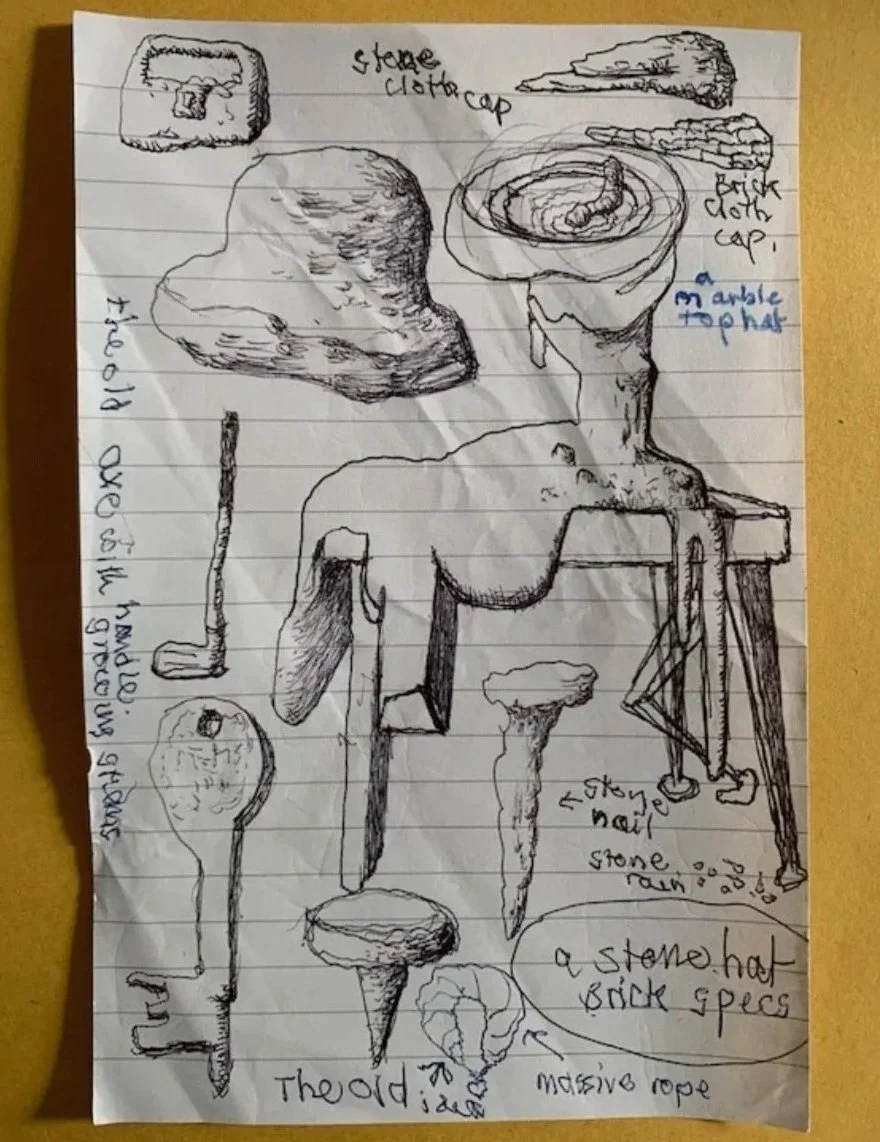 stone
cloth cap
Brick
cloth
cap.
a
marble
top hat
the old axe with handle.
growing grains
← stone
nail
stone
rain
a stone hat
Brick specs
The old
massive rope